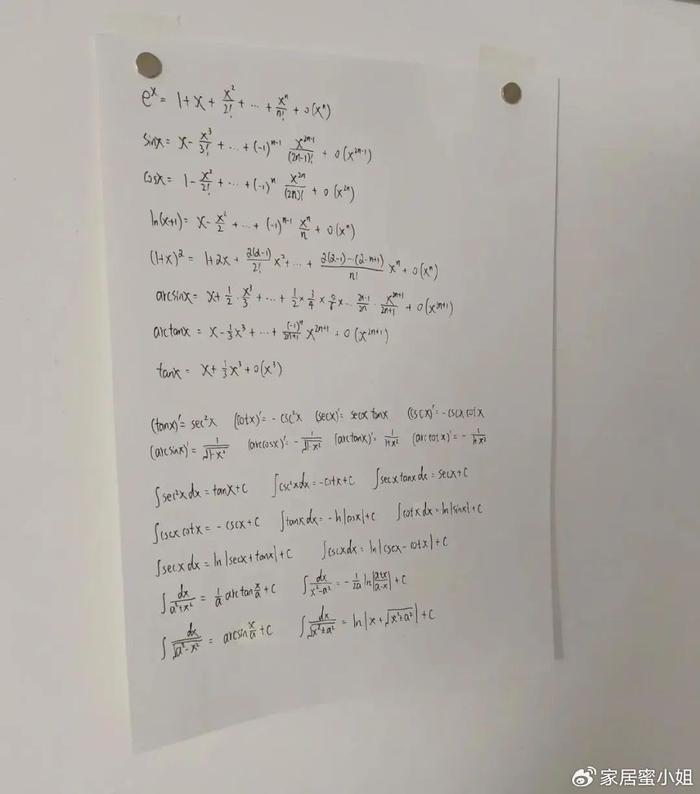 e^x = 1 + x + x²/2! + ... + x^n/n! + o(x^n)
sinx = x - x³/3! + ... + (-1)^(n-1) x^(2n-1)/(2n-1)! + o(x^(2n-1))
cosx = 1 - x²/2! + ... + (-1)^n x^(2n)/(2n)! + o(x^(2n))
ln(x+1) = x - x²/2 + ... + (-1)^(n-1) x^n/n + o(x^n)
(1+x)^2 = 1 + 2x + 2(2-1)/2! x² + ... + 2(2-1)~(2-n+1)/n! x^n + o(x^n)
arcsinx = x + 1/2 · x³/3 + ... + 1/2 × 3/4 × 5/6 × ... (2n-1)/2n · x^(2n+1)/(2n+1) + o(x^(2n+1))
arctanx = x - 1/3 x³ + ... + (-1)^n/(2n+1) x^(2n+1) + o(x^(2n+1))
tanx = x + 1/3 x³ + o(x³)
(tanx)' = sec²x (cotx)' = -csc²x (secx)' = secx tanx (cscx)' = -cscx cotx
(arcsinx)' = 1/√(1-x²) (arccosx)' = -1/√(1-x²) (arctanx)' = 1/(1+x²) (arccotx)' = -1/(1+x²)
∫sec²x dx = tanx + C ∫csc²x dx = -cotx + C ∫secx tanx dx = secx + C
∫cscx cotx = -cscx + C ∫tanx dx = -ln|cosx| + C ∫cotx dx = ln|sinx| + C
∫secx dx = ln|secx + tanx| + C ∫cscx dx = ln|cscx - cotx| + C
∫dx/(a²+x²) = 1/a arctan x/a + C ∫dx/(x²-a²) = -1/2a ln|(a+x)/(a-x)| + C
∫dx/√(a²-x²) = arcsin x/a + C ∫dx/√(x²±a²) = ln|x + √(x²±a²)| + C
家居蜜小姐